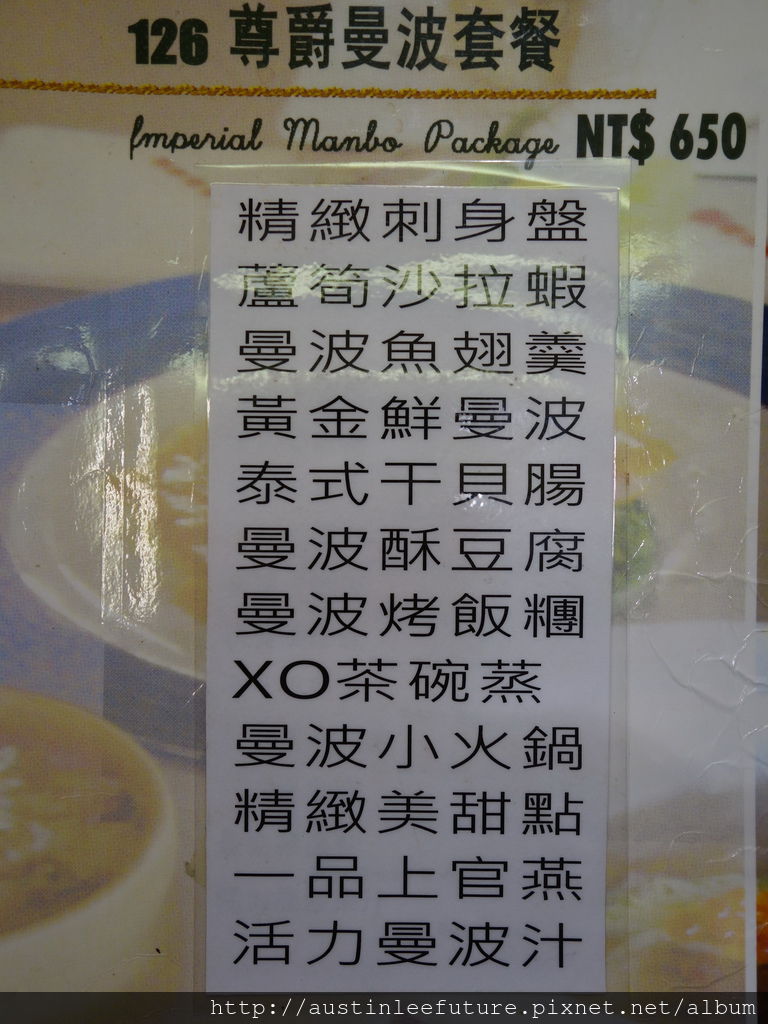 126 尊爵曼波套餐
Imperial Manbo Package NT$ 650
精緻刺身盤
蘆筍沙拉蝦
曼波魚翅羹
黃金鮮曼波
泰式干貝腸
曼波酥豆腐
曼波烤飯糰
XO茶碗蒸
曼波小火鍋
精緻美甜點
一品上官燕
活力曼波汁
http://austinleefuture.pixnet.net/album